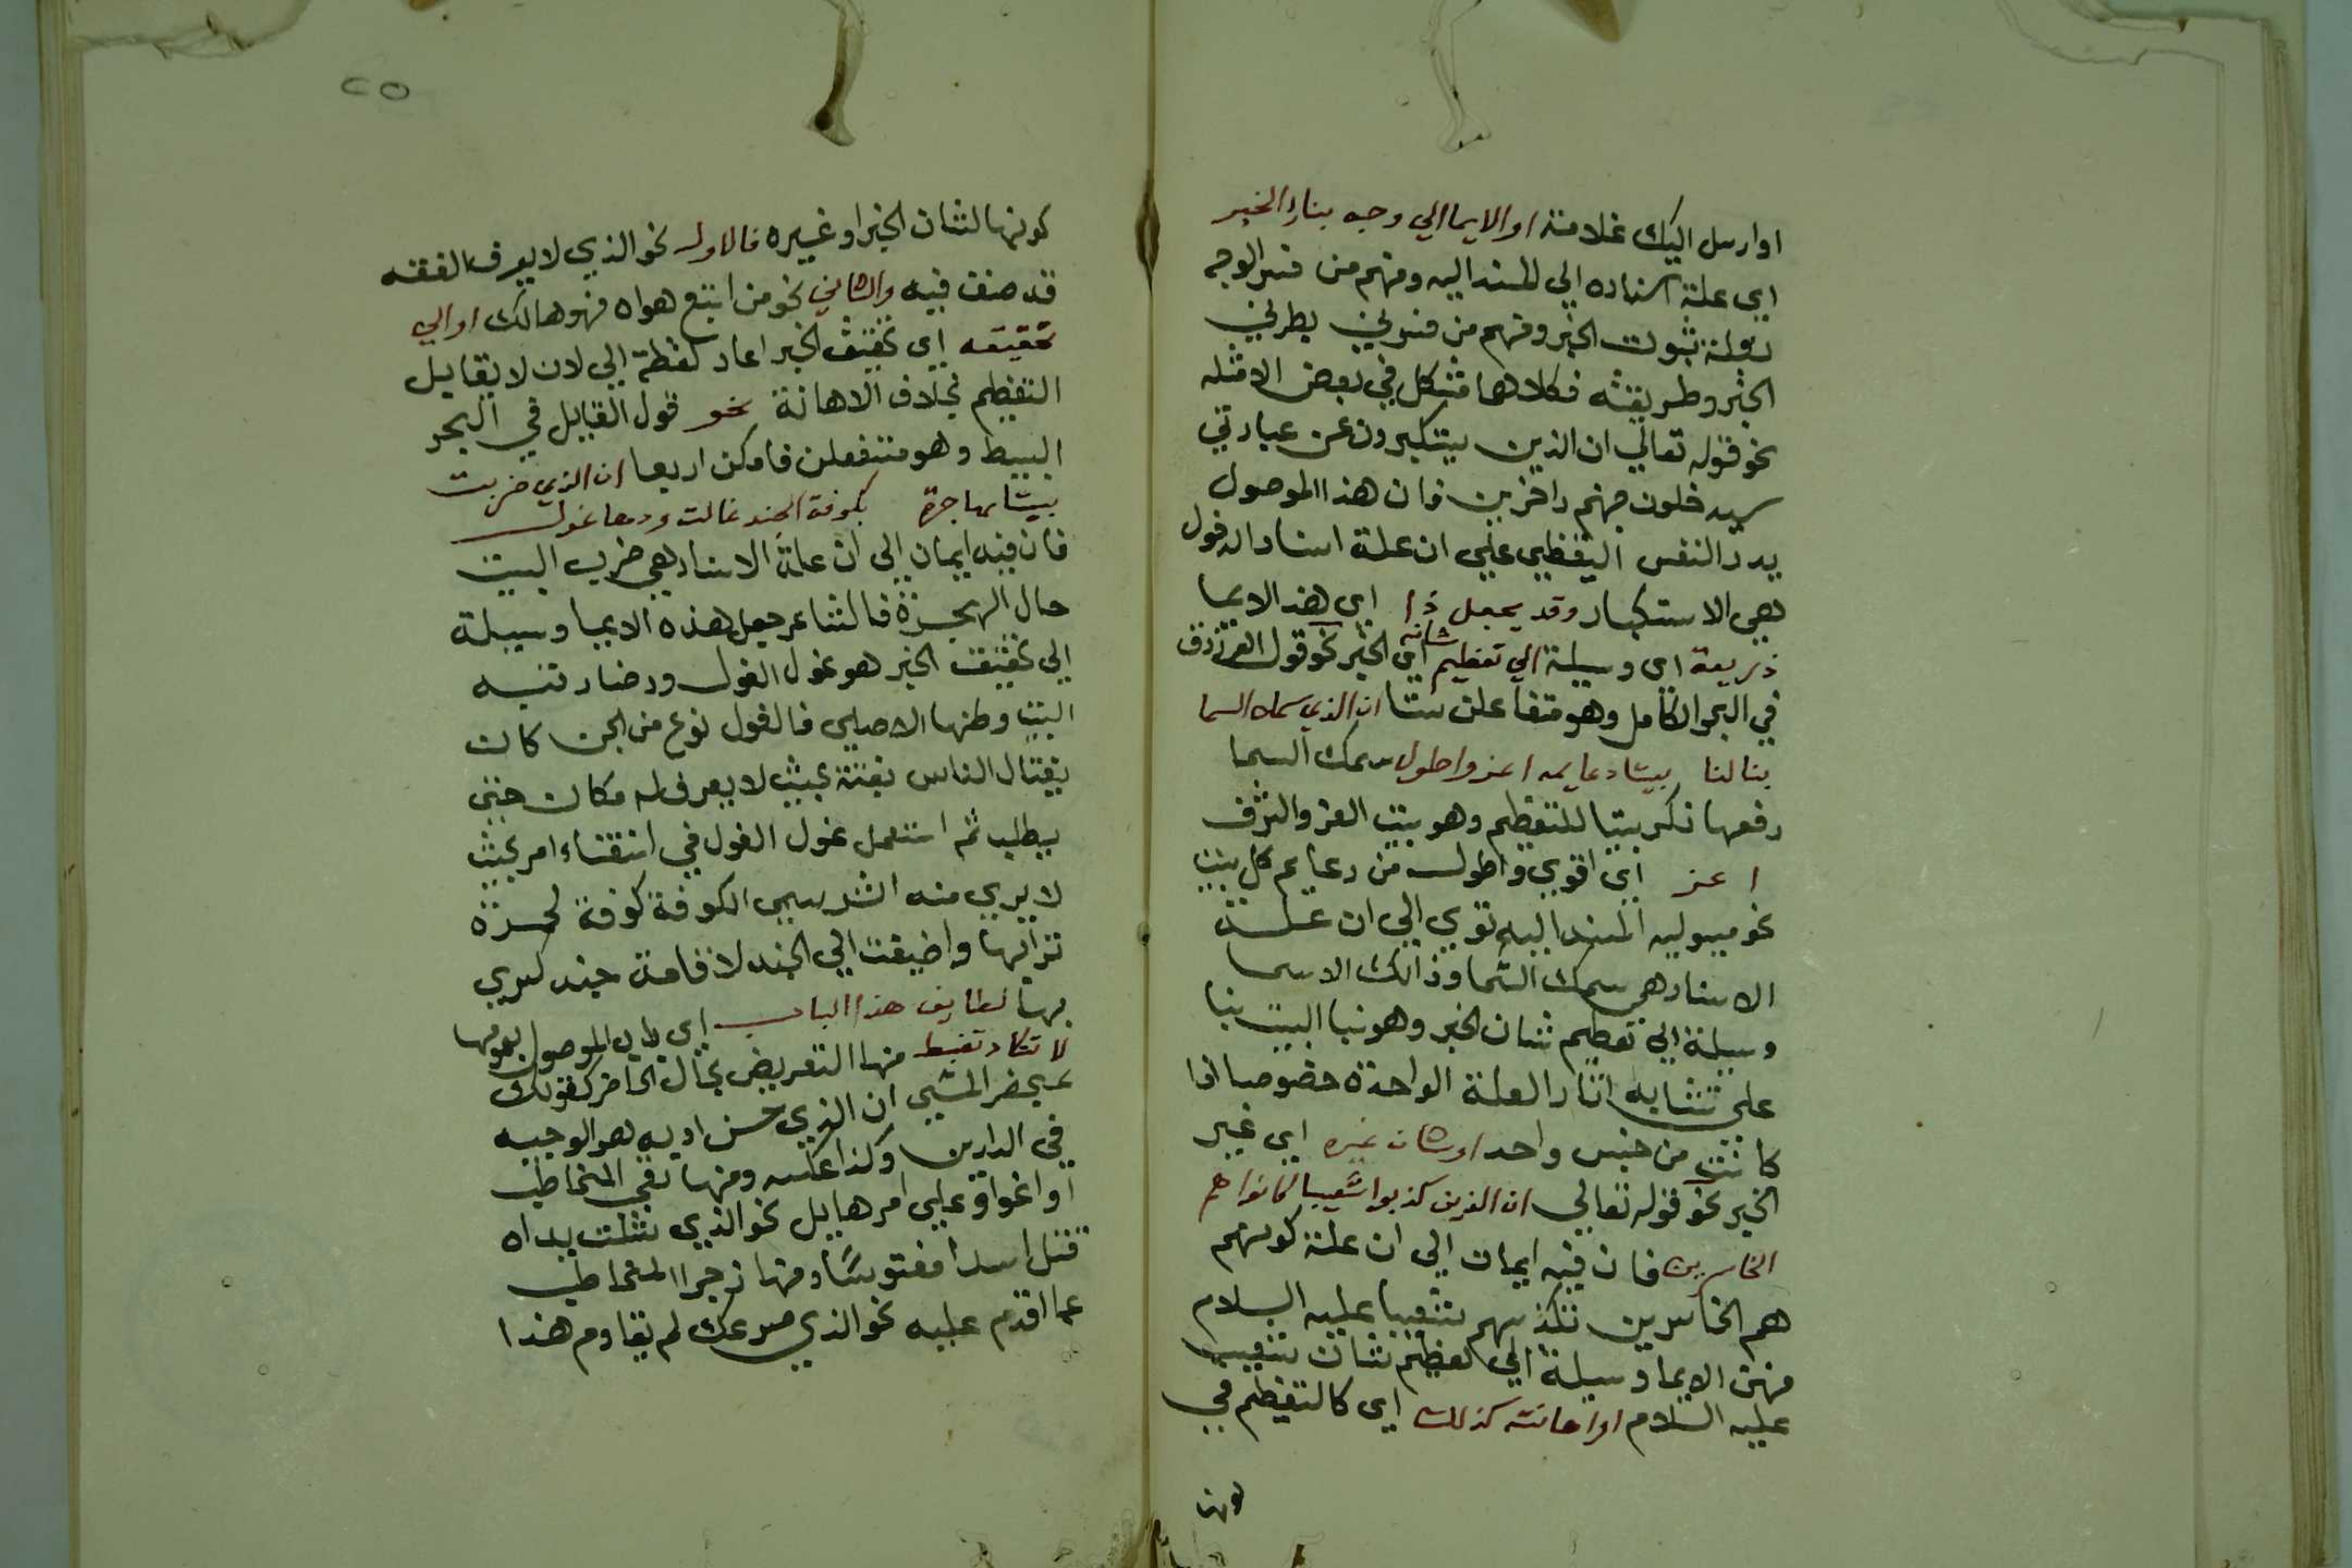 اوارسل اليك غلامنه او الايما الي وجه بناء الخبر
اي علة اسناده الي المسند اليه ومنهم من فسر الوجه
بعلة ثبوت الخبر ومنهم من فسر بطريق
الخبر وطريقته فكلاهما مشكل في بعض الامثله
نحو قوله تعالي ان الذين يستكبرون عن عبادتي
سيدخلون جهنم داخرين فان هذا الموصول
يدد النفس اليقظي علي ان علة اسناد الدخول
هي الاستكبار وقد يجعل ذا اي هذ الايما
ذريعة اي وسيلة الي تعظيم شانه اي الخبر نحو قول الفرزدق
في البحر الكامل وهو متفاعلن ستا ان الذي سمك السما
بنا لنا بيتا دعايمه اعز واطول سمك السما
رفعها نكر بيتا للتعظيم وهو بيت العز والشرف
اعز اي اقوي واطول من دعايم كل بيت
نحو ميوليه المسند اليه توي الي ان علة
الاسناد هي سمك السما وذالك الاسما
وسيلة الي تعظيم شان الخبر وهو بنا البيت بنا
علي تشابه اثار العلة الواحدة خصوصا اذا
كانت من جنس واحد او شان غيره اي غير
الخبر نحو قوله تعالي ان الذين كذبوا شعيبا كانوا هم
الخاسرين فان فيه ايمات الي ان علة كونهم
هم الخاسرين تكذيبهم شعيبا عليه السلام
فهذ الايما وسيلة الي تعظيم شان شعيب
عليه السلام او اهانته كذلك اي كالتعظيم في
كونها
٢٥
كونها لشان الخبر او غيره فالاول نحو الذي لا يعرف الفقه
قد صنف فيه والثاني نحو من اتبع هواه فهو هالك او الي
تحقيقه اي تحقيق الخبر اعاد لفظة الي لان لا يقابل
التعظيم بخلاف الاهانة نحو قول القايل في البحر
البسيط وهو مستفعلن فامكن اربعا ان الذي ضربت
بيتا مهاجرة بكوفة الجند غالت ودها غول
فان فيه ايمان الي ان علة الاسناد هي ضرب البيت
حال الهجرة فالشاعر جعل هذه الايما وسيلة
الي تحقيق الخبر هو غول الغول ود
البيت وطنها الاصلي فالغول نوع من الجن كان
يغتال الناس بغتة بحيث لا يعرف له مكان حتي
يطلب ثم استعمل غول الغول في انتقاء امر بحيث
لا يري منه اثر سمي الكوفة كوفة لحمرة
ترابها واضيفت الي الجند لاقامة جند كسري
بها لطايف هذا الباب اي باب الموصول بعومها
لا تكاد تضبط منها التعريض بحال الحاضر كقولك
بمحضر المسي ان الذي حسن ادبه هو الوجيه
في الدارين وكذا عكسه ومنها بقي المخاطب
او اغواؤ علي امر هايل نحو الذي شلت يداه
قتل اسدا مفتوسا ومنها زجر المخاطب
عما اقدم عليه نحو الذي صرعك لم يقاوم هذا